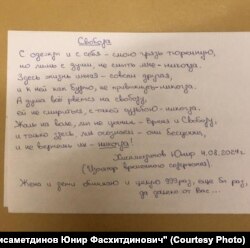 Свобода
С одежды и с себя - смою грязь тюремную,
но лишь с души, не смыть мне - никогда.
Здесь жизнь иная - совсем другая,
и к ней как будто, не привыкнуть - никогда.
А душа всё рвётся на свободу,
ей не смириться, с такой судьбою - никогда.
Жаль на воле, мы не ценим - Время и Свободу,
и только здесь, мы осознаём - они бесценны,
и не вернуть их - никогда!
Юнир 4.08.2024г.
(Изолятор временного содержания)
Жена и дети обнимаю и целую 999 раз, ещё 51 раз,
да далеко от Вас ...
нсаметдинов Юнир Фасхитдинович" (Courtesy Photo)